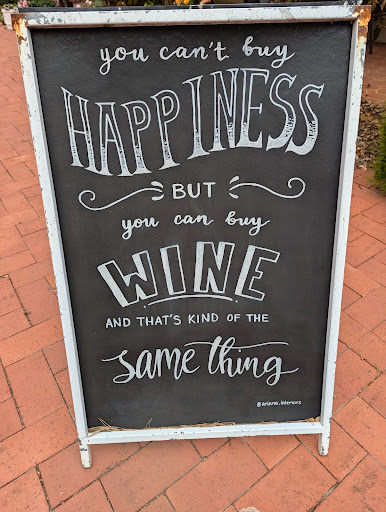 you can't buy
HAPPINESS
BUT
you can buy
WINE
AND THAT'S KIND OF THE
same thing
@ariana.interiors